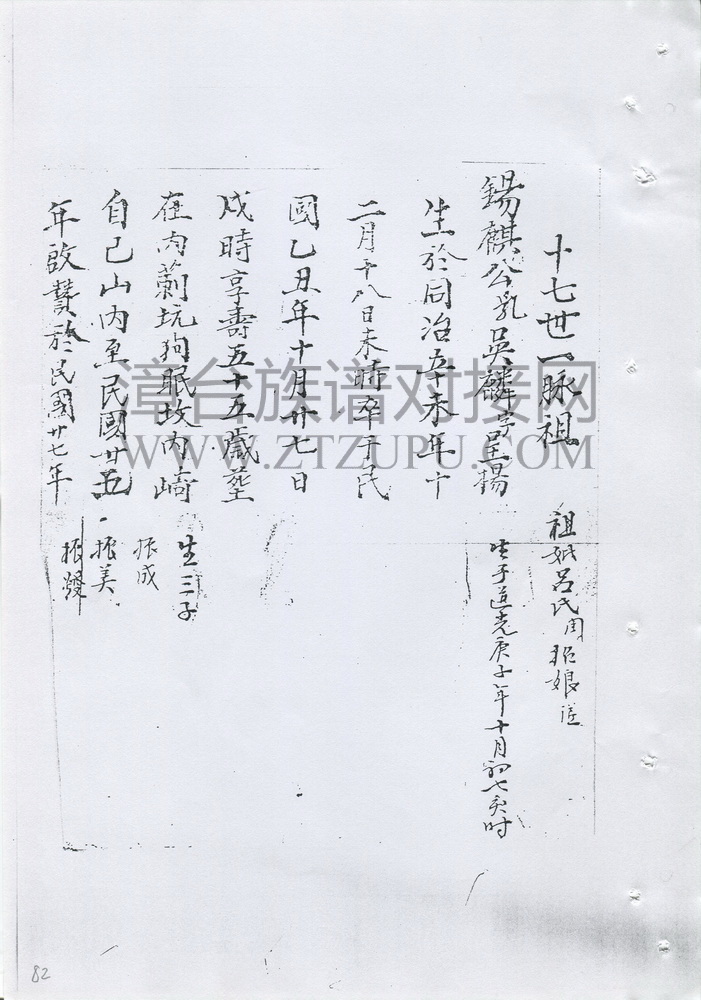 十七世一脉祖
錫麒公乳吳麟字呈揚
生於同治辛未年十
二月十八日未時卒于民
國乙丑年十月廿七日
戌時享壽五十五歲塟
在内莿坑狗眠坟内崎
自己山内至民國廿五
年啟攢於民國廿七年
祖妣呂氏閏招娘
生于道光庚子年十月初七亥时
生三子
振成
振美
振發
漳台族谱对接网
WWW.ZTZUPU.COM
82